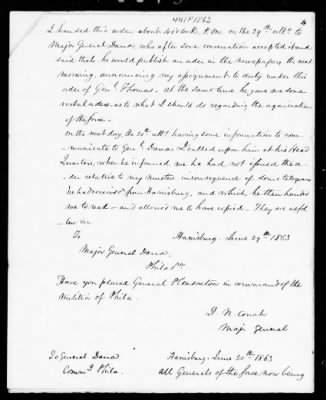 441P1863
4
I handed this order about 4 o'clock, P.M. on the 29th ulto. to
Major General Dana, who after some conversation accepted it and
said that he would publish an order in the newspapers the next
morning, announcing my assignment to duty under this
order of Genl. Thomas. At the same time he gave me some
verbal orders as to what I should do regarding the organization
of the force.
On the next day, the 30th ulto. having some information to com-
municate to Genl. Dana I called upon him at his Head
Quarters, when he informed me he had not issued the or-
der relative to my muster in consequence of some telegrams
he had received from Harrisburg, and which he then handed
me to read - and allowed me to have copied - They are as fol-
low viz.
To Harrisburg. June 29th 1863
Major General Dana.
Philada.
Have you placed General Pleasonton in command of the
Militia of Phila.
D. N. Couch
Majr General
To General Dana Harrisburg. June 30th 1863
Commg. Phila. All Generals of the force now being